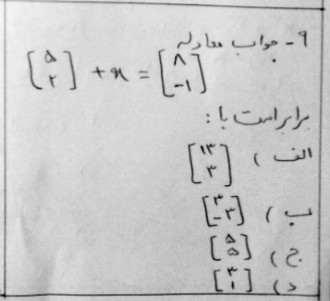 ۹- جواب معادله
[۵ ۲] + x = [۸ -۱]
برابر است با :
الف) [۱۳ ۳]
ب) [۳ -۳]
ج) [۵ ۵]
د) [۳ ۱]